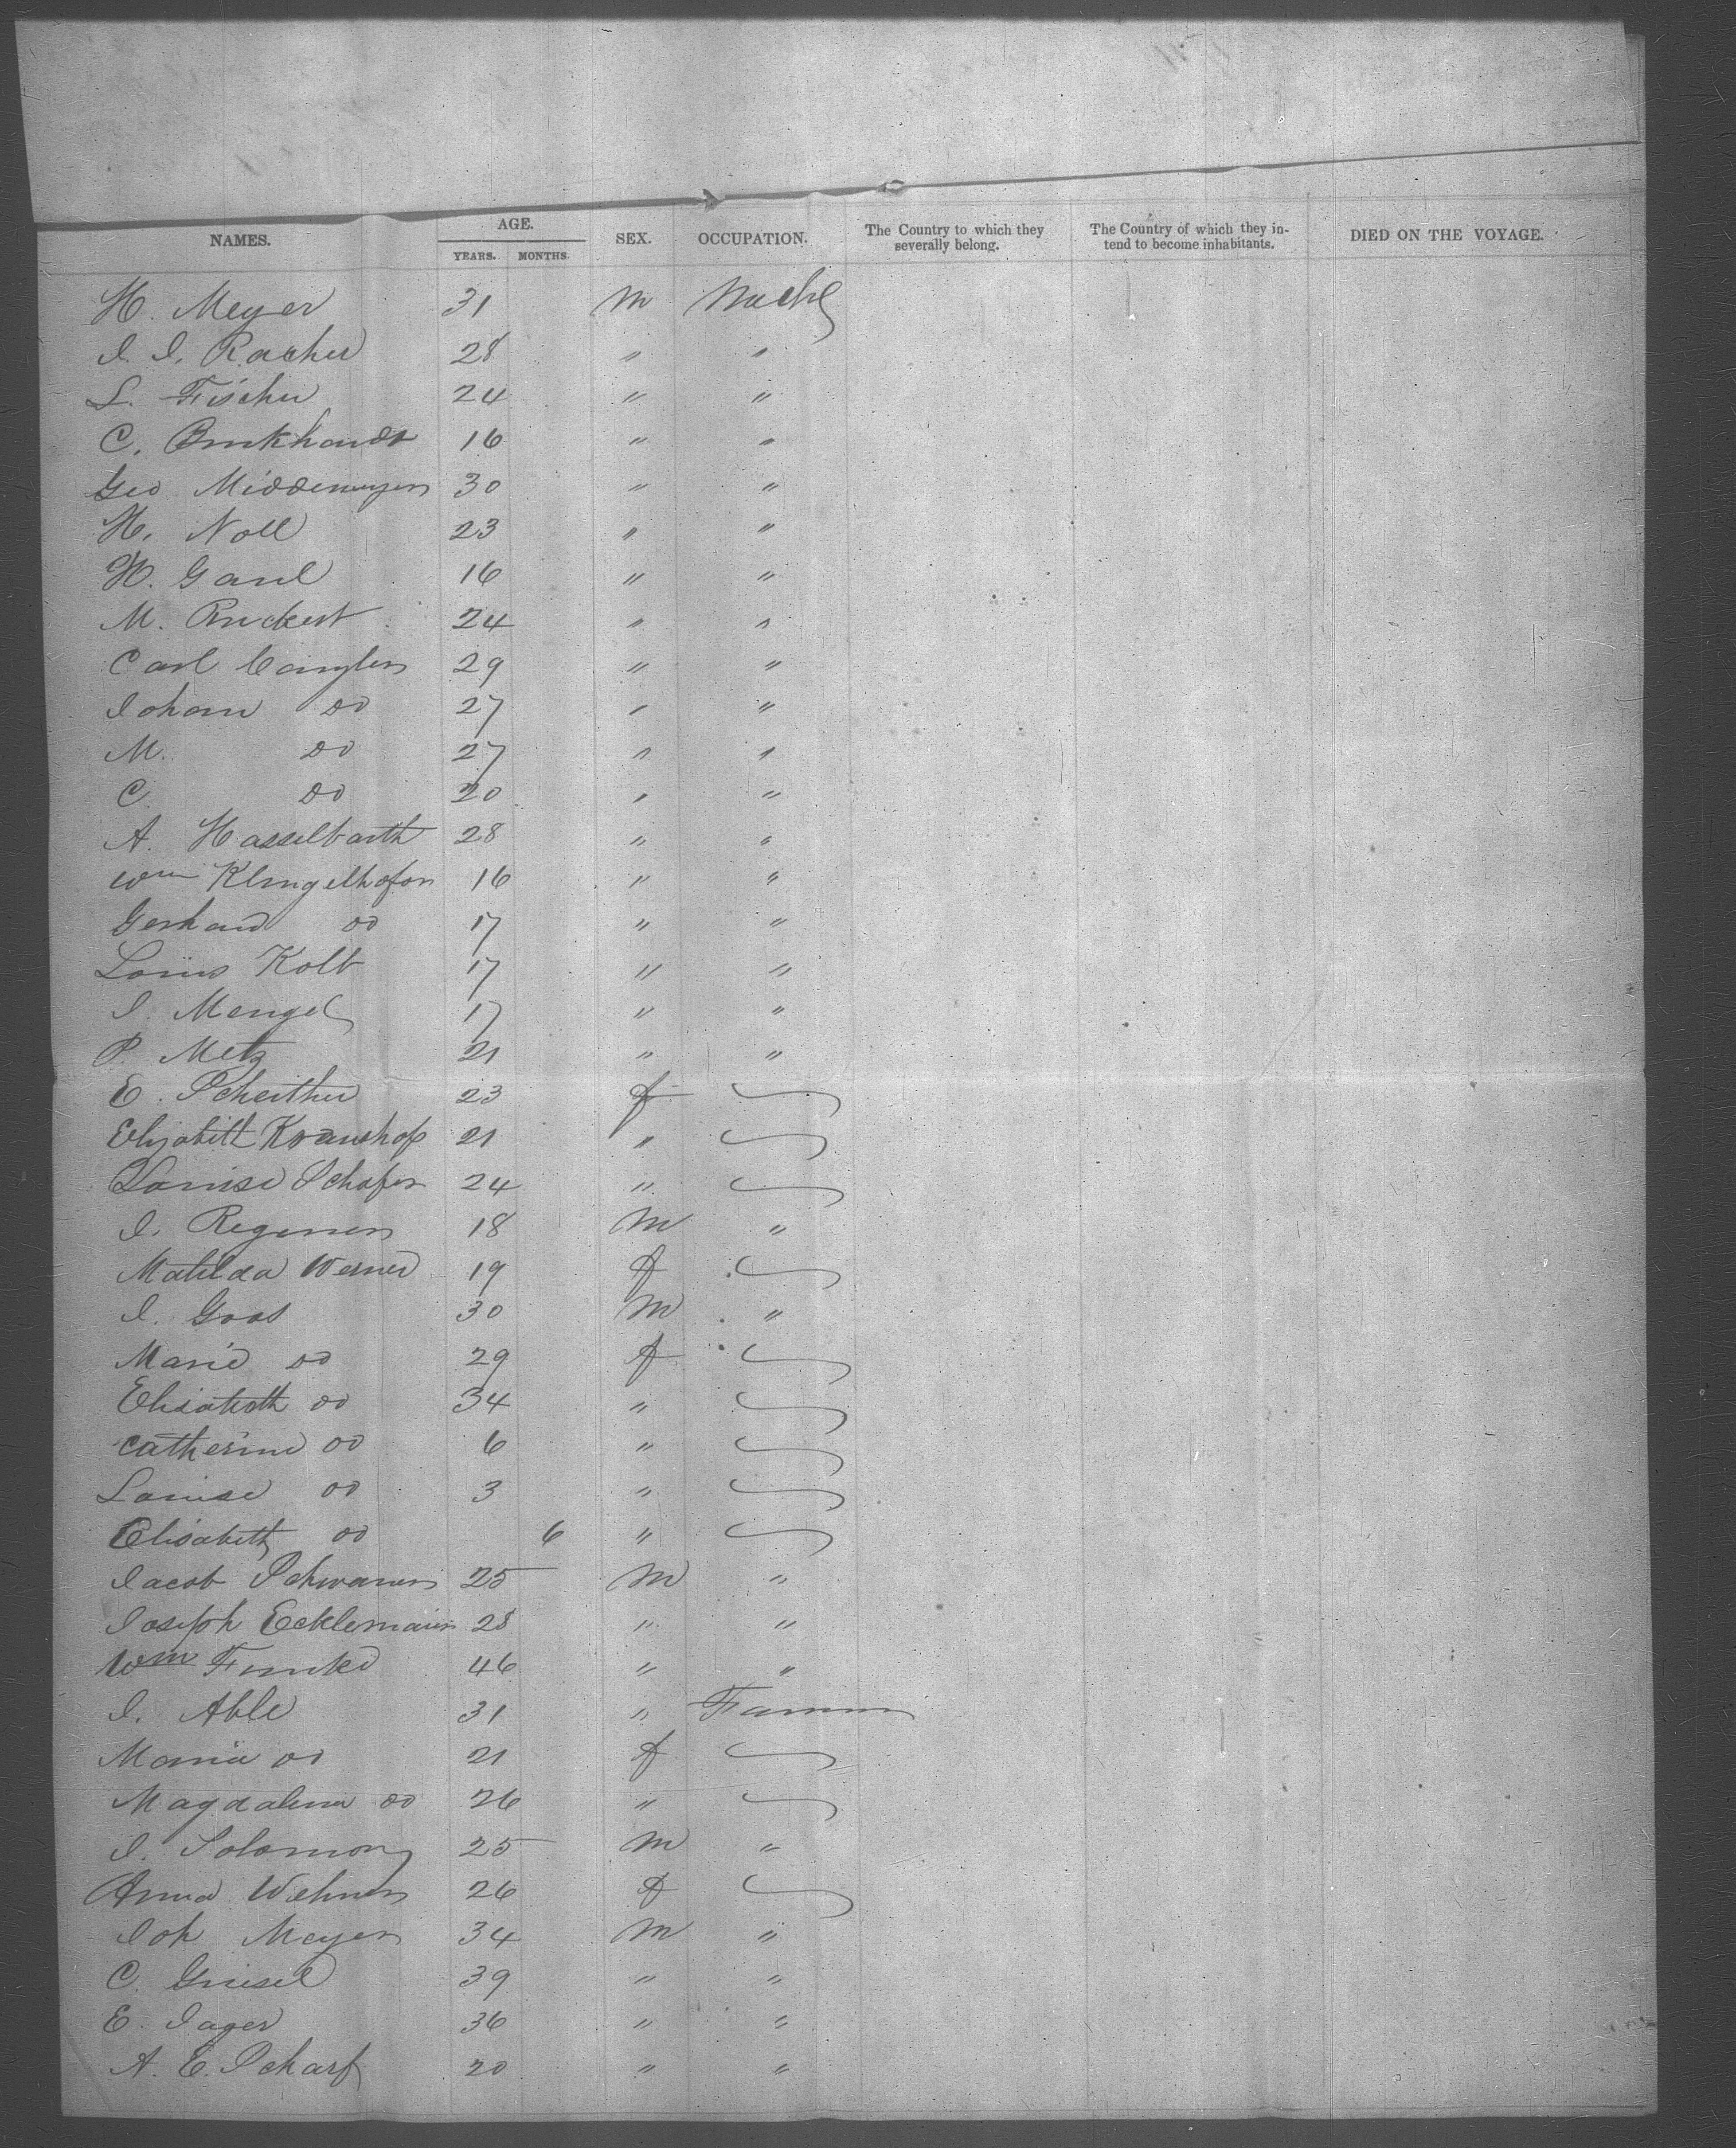 NAMES. AGE. YEARS. MONTHS. SEX. OCCUPATION. The Country to which they severally belong. The Country of which they intend to become inhabitants. DIED ON THE VOYAGE.
H. Meyer 31 m
I. I. Racher 28 " "
L. Fischer 24 " "
C. Burkhardt 16 " "
Geo Middemeyer 30 " "
H. Noll 23 " "
H. 16 " "
M. Ruckert 24 " "
Carl 29 " "
Johann do 27 " "
M. do 27 " "
C. do 20 " "
A. Hasselbarth 28 " "
Wm Klingelhofer 16 " "
Gerhard do 17 " "
Louis Kolb 17 " "
I. Mengel 17 " "
P. Metz 21 " "
E. 23 f
Elizabeth 21 "
Louise Schafer 24 "
I. 18 m "
Matilda Werner 19 f
I. Goos 30 m "
Marie do 29 f
Elisabeth do 34 "
Catherine do 6 "
Louise do 3 "
Elisabeth do 6 "
Jacob 25 m "
Joseph Ecklemann 28 " "
Wm Funke 46 " "
I. Able 31 " Farmer
Maria do 21 f
Magdalena do 26 "
I. Solomon 25 m "
Anna Wehner 26 f
Joh Meyer 34 m "
C. Griesel 39 " "
E. Jager 36 " "
A. E. Scharf 20 " "